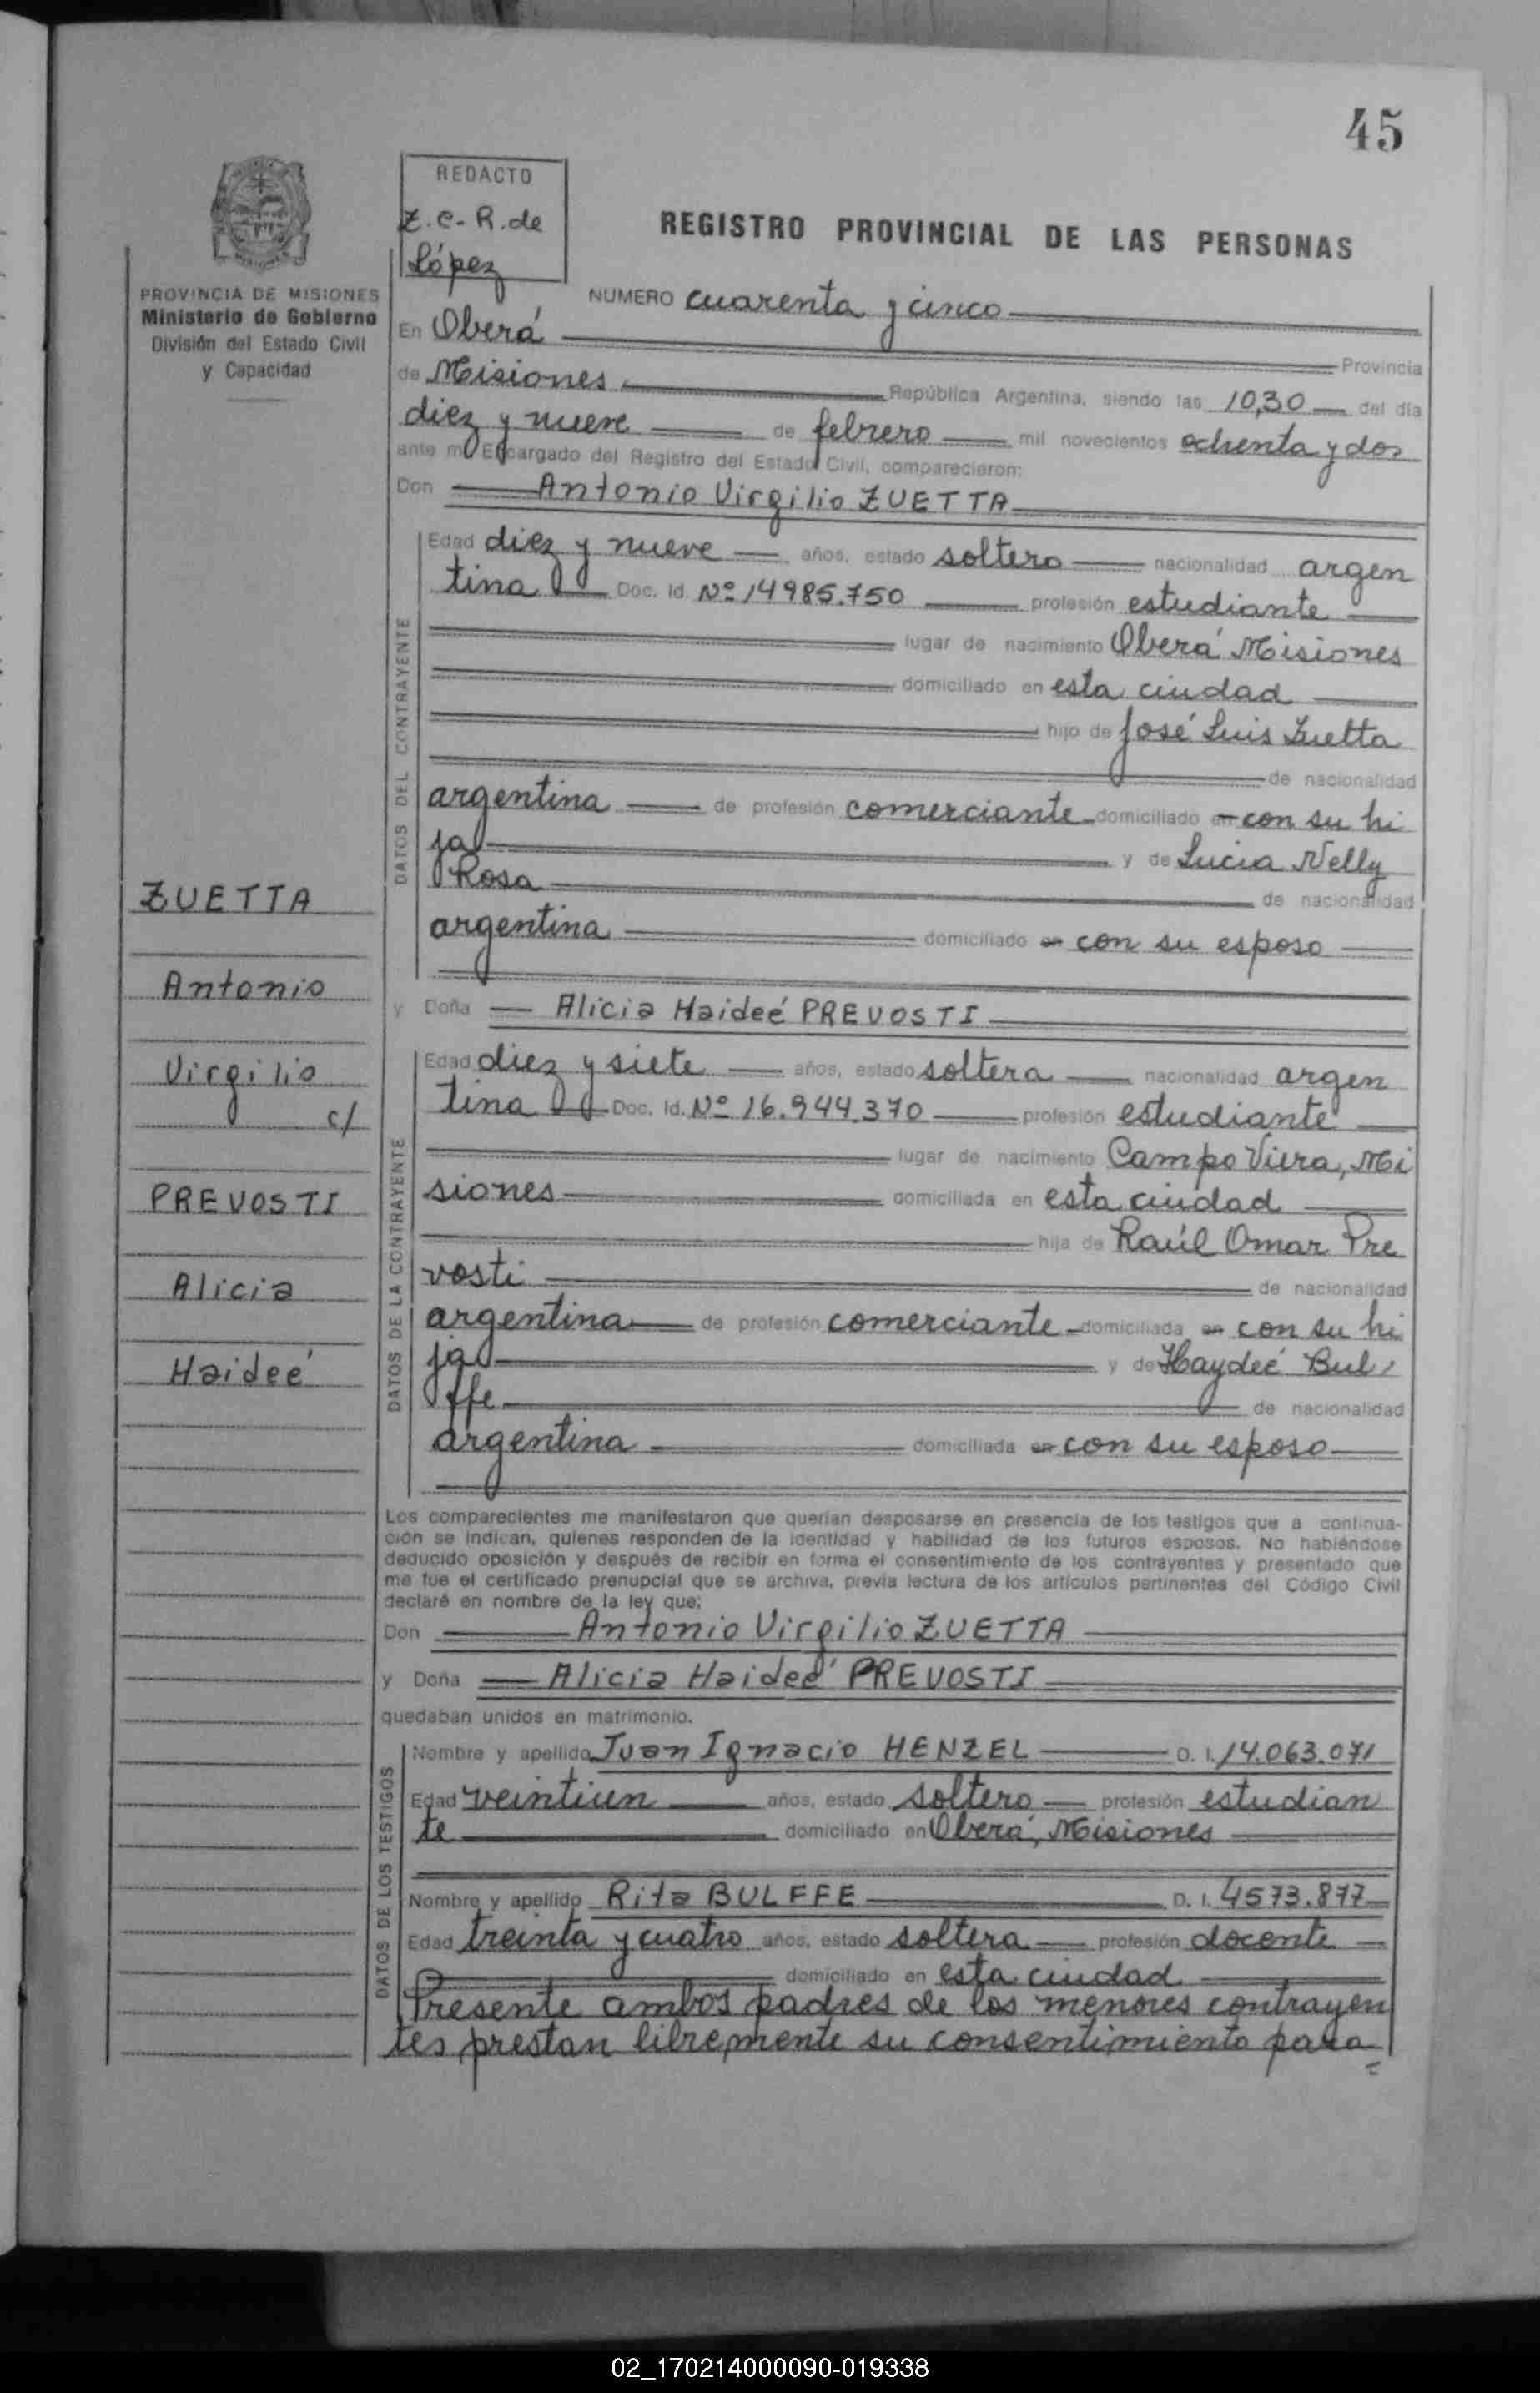 45
REDACTO
Z.C-R.de
López
REGISTRO PROVINCIAL DE LAS PERSONAS
PROVINCIA DE MISIONES
Ministerio de Gobierno
División del Estado Civil
y Capacidad
NUMERO cuarenta y cinco
En Oberá Provincia
de Misiones República Argentina, siendo las 10,30 del día
diez y nueve de febrero mil novecientos ochenta y dos
ante mí Encargado del Registro del Estado Civil, comparecieron:
Don Antonio Virgilio ZUETTA
DATOS DEL CONTRAYENTE
Edad diez y nueve años, estado soltero nacionalidad argen
tina Doc. Id. Nº 14985.750 profesión estudiante
lugar de nacimiento Oberá Misiones
domiciliado en esta ciudad
hijo de José Luis Zuetta
de nacionalidad
argentina de profesión comerciante domiciliado en con su hi
ja y de Lucia Nelly
Rosa de nacionalidad
argentina domiciliado en con su esposo
y Doña Alicia Haideé PREVOSTI
DATOS DE LA CONTRAYENTE
Edad diez y siete años, estado soltera nacionalidad argen
tina Doc. Id. Nº 16.944.370 profesión estudiante
lugar de nacimiento Campo Viera, Mi
siones domiciliada en esta ciudad
hija de Raúl Omar Pre
vosti de nacionalidad
argentina de profesión comerciante domiciliada en con su hi
ja y de Haydeé Bul
ffe de nacionalidad
argentina domiciliada en con su esposo
ZUETTA
Antonio
Virgilio
c/
PREVOSTI
Alicia
Haideé
Los comparecientes me manifestaron que querían desposarse en presencia de los testigos que a continua-
ción se indican, quienes responden de la identidad y habilidad de los futuros esposos. No habiéndose
deducido oposición y después de recibir en forma el consentimiento de los contrayentes y presentado que
me fue el certificado prenupcial que se archiva, previa lectura de los artículos pertinentes del Código Civil
declaré en nombre de la ley que:
Don Antonio Virgilio ZUETTA
y Doña Alicia Haideé PREVOSTI
quedaban unidos en matrimonio.
DATOS DE LOS TESTIGOS
Nombre y apellido Juan Ignacio HENZEL D. I. 14.063.071
Edad veintiun años, estado soltero profesión estudian
te domiciliado en Oberá, Misiones
Nombre y apellido Rita BULFFE D. I. 4573.877
Edad treinta y cuatro años, estado soltera profesión docente
domiciliado en esta ciudad
Presente ambos padres de los menores contrayen
tes prestan libremente su consentimiento para
02_170214000090-019338